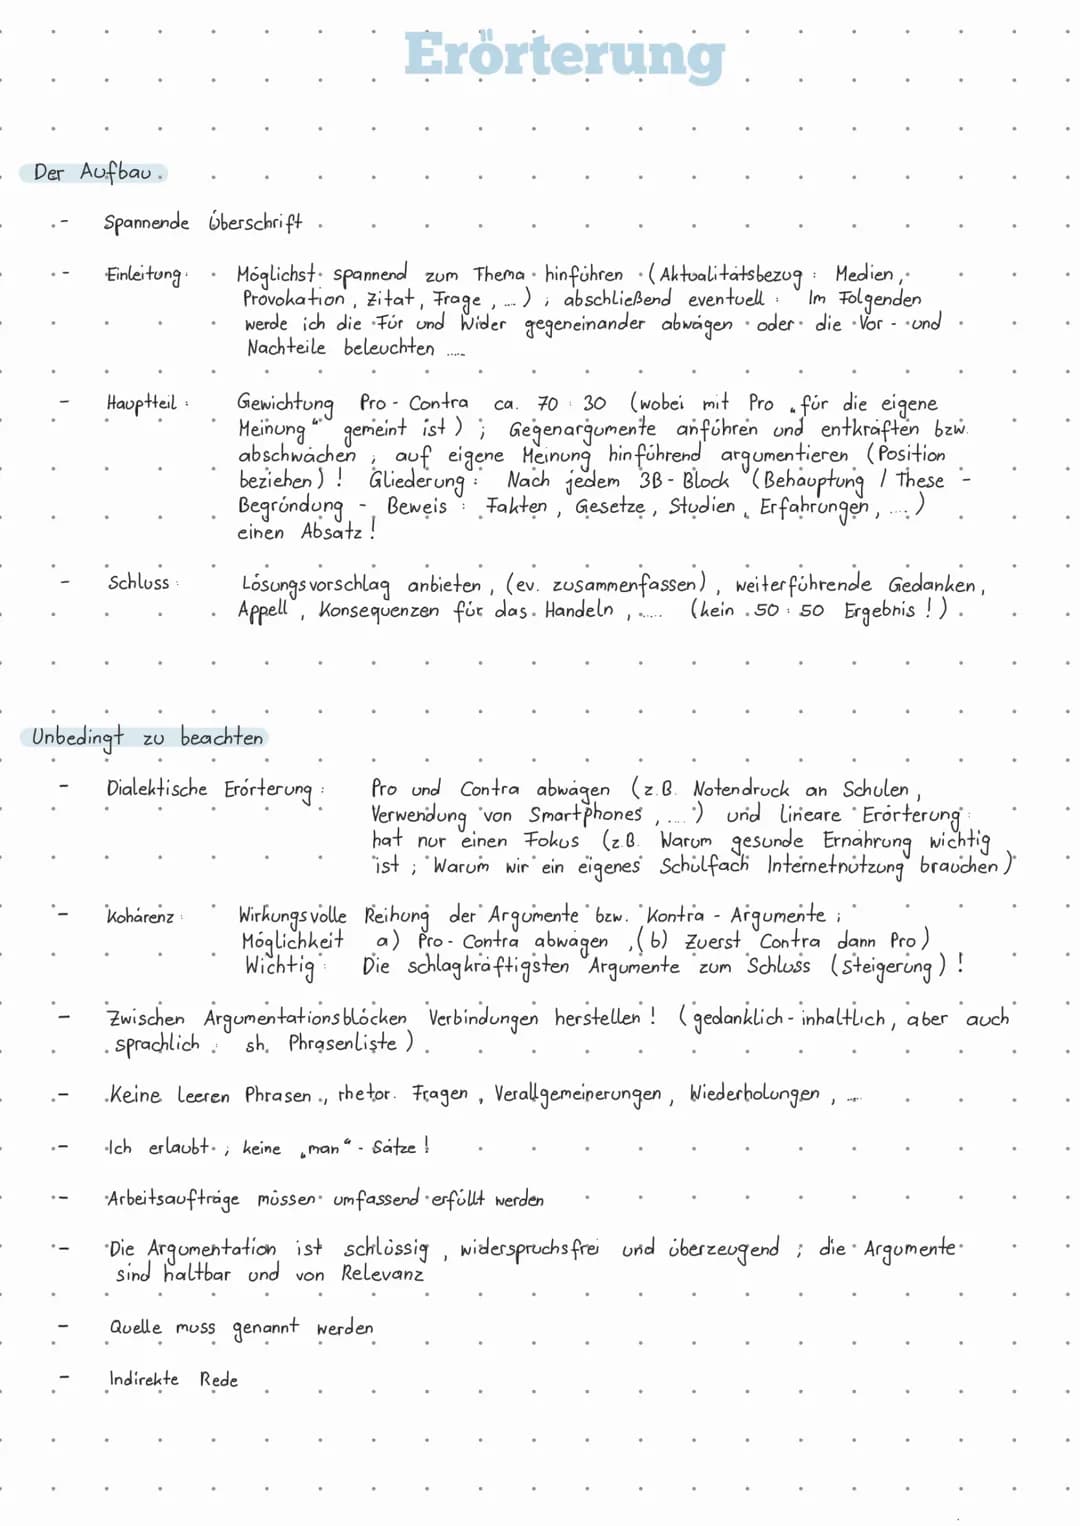 Erörterung
Der Aufbau
- Spannende Überschrift
- Einleitung: Möglichst spannend zum Thema hinführen (Aktualitätsbezug: Medien,
Provokation, Zitat, Frage, ...); abschließend eventuell: Im Folgenden
werde ich die Für und Wider gegeneinander abwägen oder die Vor- und
Nachteile beleuchten .....
- Hauptteil: Gewichtung Pro - Contra ca. 70 : 30 (wobei mit Pro „für die eigene
Meinung“ gemeint ist); Gegenargumente anführen und entkräften bzw.
abschwächen, auf eigene Meinung hinführend argumentieren (Position
beziehen)! Gliederung: Nach jedem 3B - Block (Behauptung / These -
Begründung - Beweis: Fakten, Gesetze, Studien, Erfahrungen, ....)
einen Absatz!
- Schluss: Lösungsvorschlag anbieten, (ev. zusammenfassen), weiterführende Gedanken,
Appell, Konsequenzen für das Handeln, ..... (kein 50 : 50 Ergebnis!)
Unbedingt zu beachten
- Dialektische Erörterung: Pro und Contra abwägen (z.B. Notendruck an Schulen,
Verwendung von Smartphones, ....) und lineare Erörterung:
hat nur einen Fokus (z.B. Warum gesunde Ernährung wichtig
ist; Warum wir ein eigenes Schulfach Internetnutzung brauchen)
- Kohärenz: Wirkungsvolle Reihung der Argumente bzw. Kontra - Argumente;
Möglichkeit a) Pro - Contra abwägen, (b) Zuerst Contra dann Pro)
Wichtig: Die schlagkräftigsten Argumente zum Schluss (Steigerung)!
- Zwischen Argumentationsblöcken Verbindungen herstellen! (gedanklich - inhaltlich, aber auch
sprachlich: sh. Phrasenliste)
- Keine leeren Phrasen, rhetor. Fragen, Verallgemeinerungen, Wiederholungen, ...
- Ich erlaubt; keine „man“ - Sätze!
- Arbeitsaufträge müssen umfassend erfüllt werden
- Die Argumentation ist schlüssig, widerspruchsfrei und überzeugend; die Argumente
sind haltbar und von Relevanz
- Quelle muss genannt werden
- Indirekte Rede